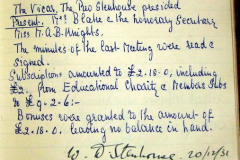 The Vicar, The Rev Stenhouse presided
Present. Miss Blake & the honorary Secretary
Miss M.A.B. Knights.
The minutes of the last meeting were read &
signed.
Subscriptions amounted to £2.18.0, including
£2. from Educational Charity & Members Subs
to £0-2-6:-
Bonuses were granted to the amount of
£2.18.0. leading no balance in hand.
W. D Stenhouse 20/12/31